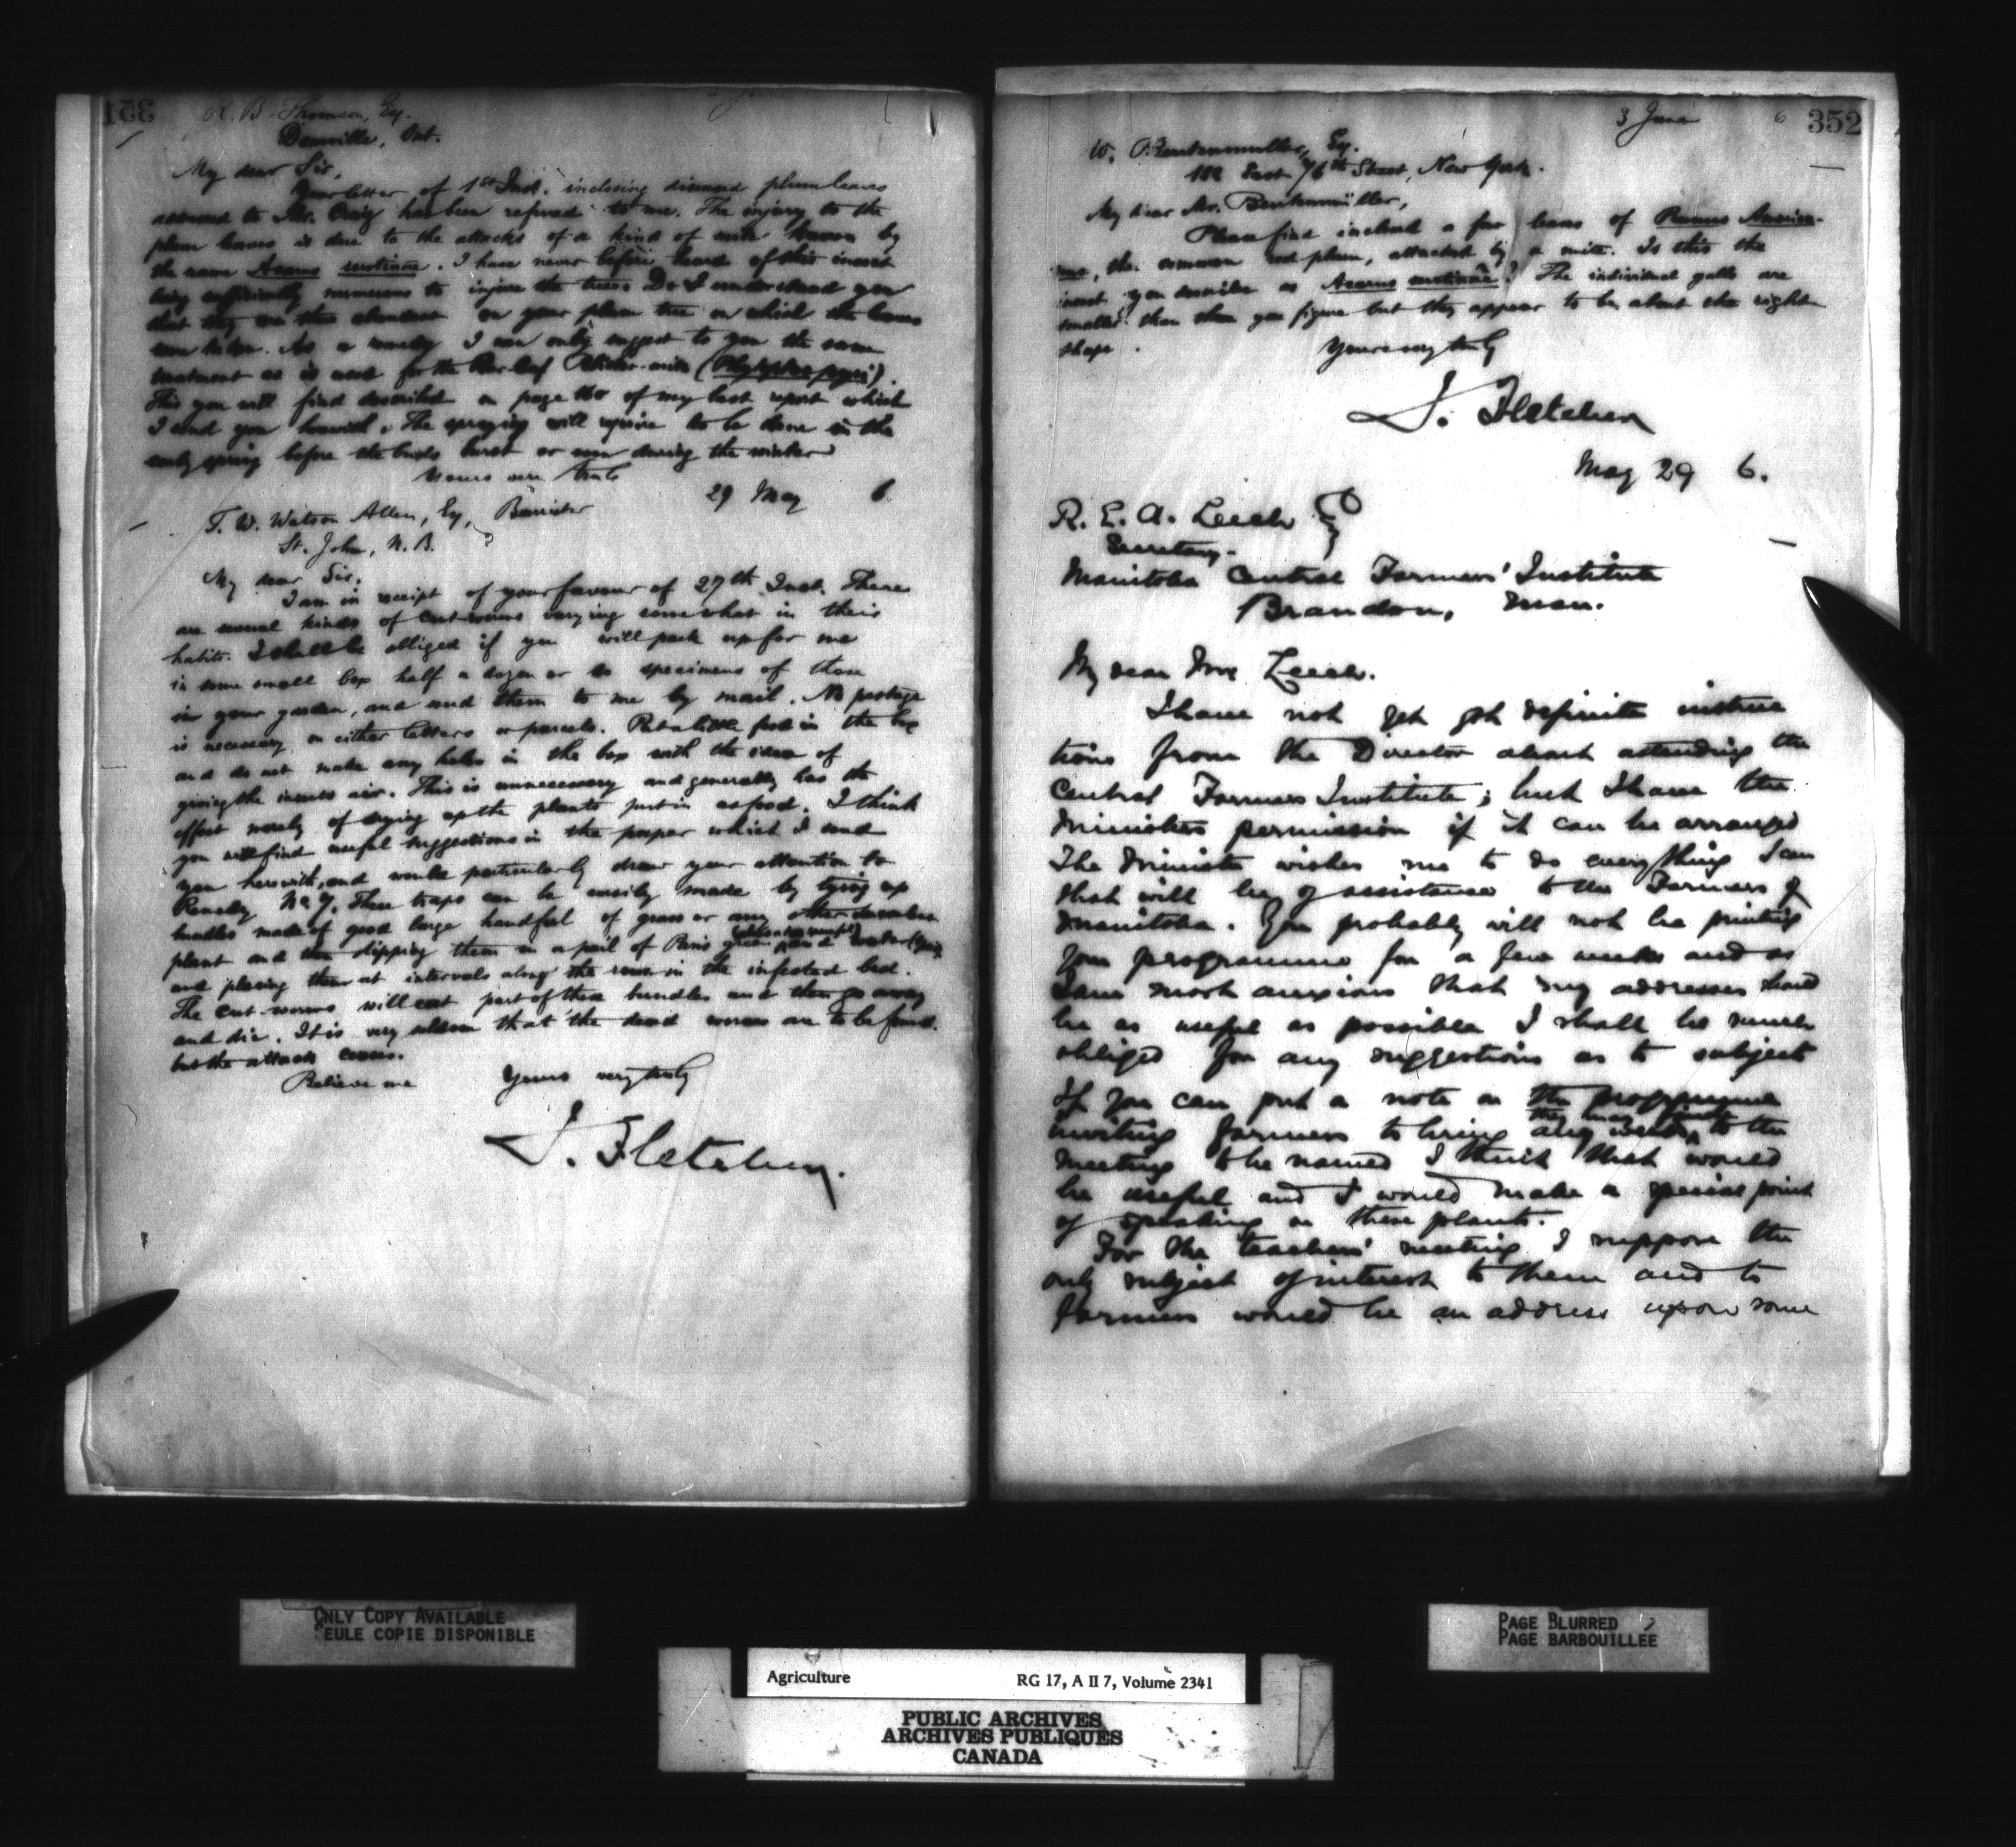 351
R. B. Thomson, Esq.
Dunnville, Ont.
My dear Sir,
Your letter of 1st Inst. inclosing diseased plum leaves
addressed to Mr. Craig has been referred to me. The injury to the
plum leaves is due to the attacks of a kind of mite known by
the name Acarus serotinae. I have never before heard of this insect
being sufficiently numerous to injure the trees. Do I understand you
that they are this abundant on your plum tree on which the leaves
were taken. As a remedy I can only suggest to you the same
treatment as is used for the Pear-leaf Blister-mite (Phytoptus pyri).
This you will find described on page 160 of my last report which
I send you herewith. The spraying will require to be done in the
early spring before the buds burst or even during the winter
Yours very truly
29 May 6.
T. W. Watson Allen, Esq, Barrister
St. John, N. B.
My dear Sir.
I am in receipt of your favour of 27th Inst. There
are several kinds of cut-worms varying somewhat in their
habits. I shall be obliged if you will pack up for me
in some small box half a dozen or so specimens of those
in your garden, and send them to me by mail. No postage
is necessary on either letters or parcels. Put a little food in the box
and do not make any holes in the box with the idea of
giving the insects air. This is unnecessary and generally has the
effect merely of drying up the plants put in as food. I think
you will find useful suggestions in the paper which I send
you herewith, and would particularly draw your attention to
Remedy No 7. These traps can be easily made by tying up
bundles made of good large handful of grass or any other succulent
plant and then dipping them in a pail of Paris green and water
and placing them at intervals along the rows in the infested bed.
The cut-worms will eat part of these bundles and then go away
and die. It is very seldom that the dead worms are to be found.
but the attack ceases.
Believe me Yours very truly
J. Fletcher.
3 June 6 352
W. Beutenmuller, Esq.
182 East 76th Street, New York.
My dear Mr. Beutenmüller,
Please find inclosed a few leaves of Prunus America-
na, the common red plum, attacked by a mite. Is this the
insect you describe as Acarus serotinae? The individual galls are
smaller than those you figure but they appear to be about the right
shape.
Yours very truly
J. Fletcher
May 29 6.
R. E. A. Leech
Secretary-
Manitoba Central Farmers' Institute
Brandon, Man.
My dear Mr. Leech.
I have not yet got definite instruc
tions from the Director about attending the
Central Farmers Institute; but I have the
Ministers permission if it can be arranged
The Minister wishes me to do everything I can
that will be of assistance to the Farmers of
Manitoba. You probably will not be printing
your programme for a few weeks and as
I am most anxious that my addresses should
be as useful as possible I shall be much
obliged for any suggestions as to subjects
If you can put a note on the programme
inviting farmers to bring any weeds they may find to the
meeting to be named I think that would
be useful and I would make a special point
of speaking on these plants.
For the teachers' meeting I suppose the
only subject of interest to them and to
farmers would be an address upon some
ONLY COPY AVAILABLE
SEULE COPIE DISPONIBLE
PAGE BLURRED
PAGE BARBOUILLEE
Agriculture RG 17, A II 7, Volume 2341
PUBLIC ARCHIVES
ARCHIVES PUBLIQUES
CANADA